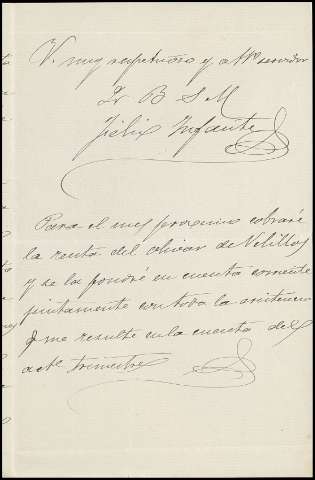 V. muy respetuoso y atto servidor
Q B S M
Félix Infante
Para el mes proximo cobraré
la renta del olivar de Velillos
y se la pondré en cuenta corriente
juntamente con toda la existencia
q me resulte en la cuenta del
actl trimestre